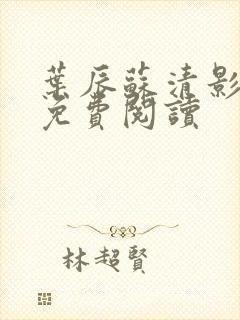 葉辰蘇清影
免費閱讀
林超賢